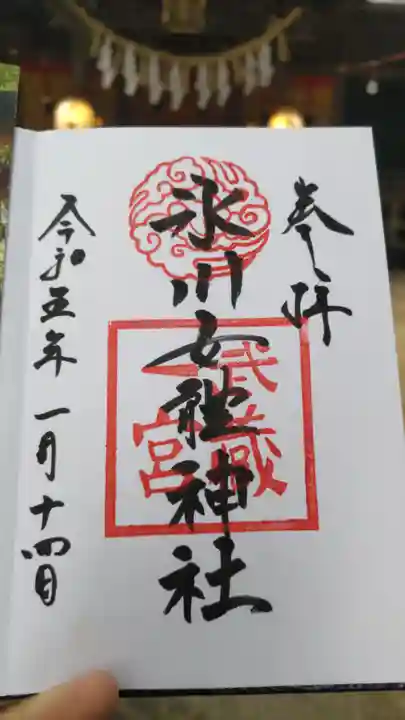 奉拝
氷川女體神社
武蔵
一宮
令和五年一月十四日